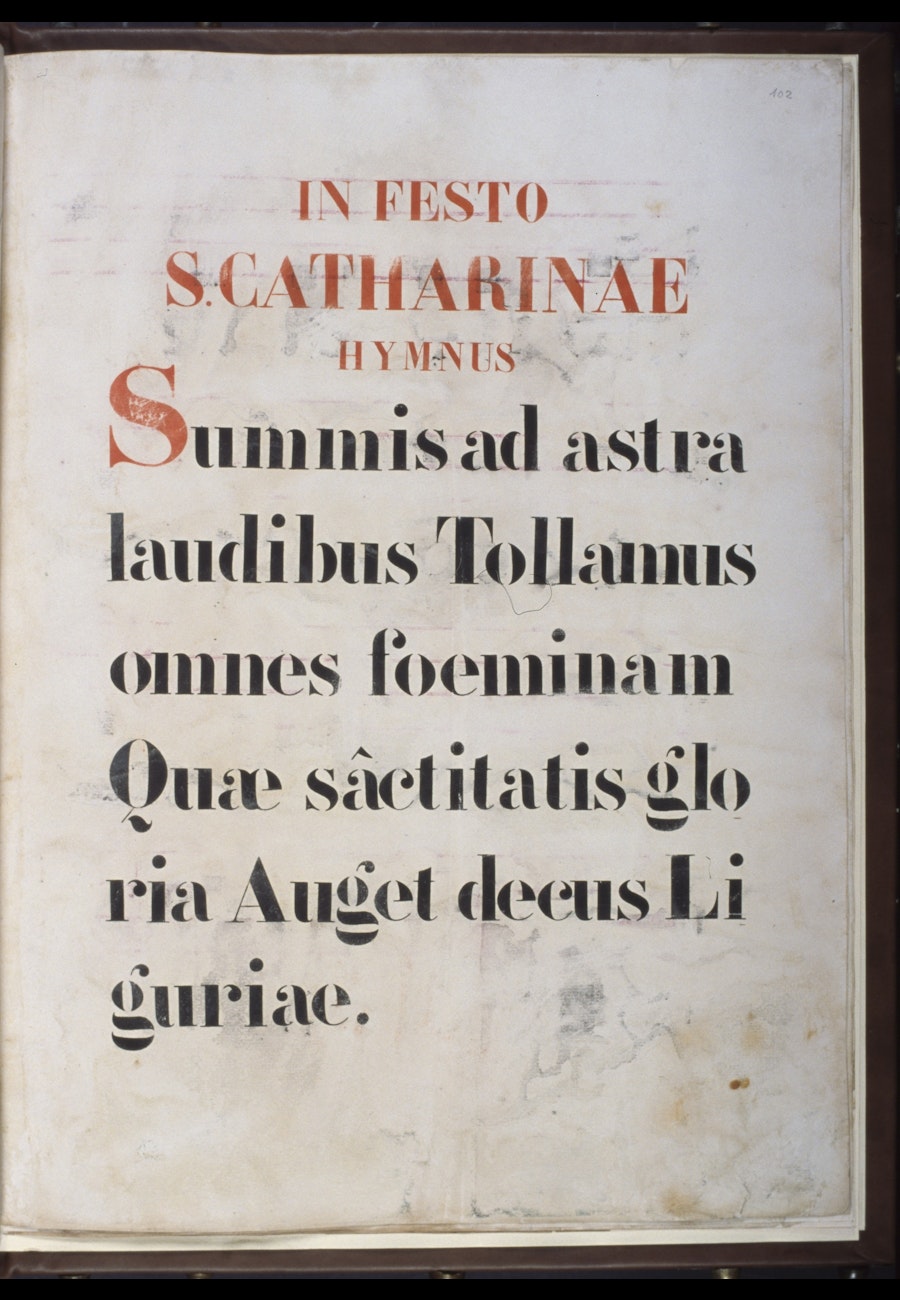 102
IN FESTO
S. CATHARINAE
HYMNUS
Summis ad astra
laudibus Tollamus
omnes foeminam
Quæ sâctitatis glo
ria Auget decus Li
guriae.